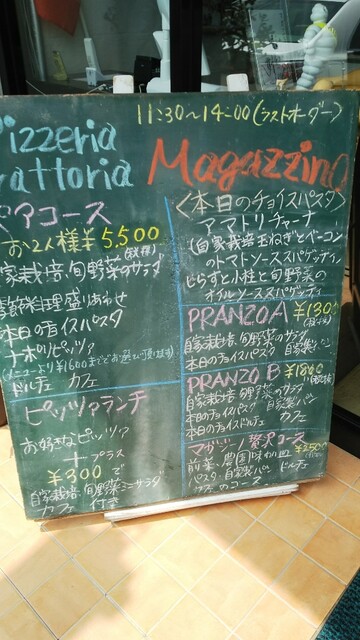 11:30~14:00(ラストオーダー)
izzeria
rattoria Magazzino
アコース
お二人様¥5,500
(税抜)
家栽培・旬野菜のサラダ
料理盛りあわせ
本日のチョイスパスタ
ナポリピッツァ
(メニューより¥1600までで
ドルチェ カフェ
ピッツァランチ
お好きなピッツァ
+プラス
¥300で
自家栽培・旬野菜ミニサラダ
カフェ 付き
<本日のチョイスパスタ>
アマトリチャーナ
(自家栽培玉ねぎとベーコン
のトマトソーススパゲッティ
しらすと小柱と旬野菜の
オイルソーススパゲッティ
PRANZO A ¥130
自家栽培・旬野菜のサラダ
本日のチョイスパスタ 自家製パン
PRANZO B ¥1800
(税抜)
自家栽培・旬野菜のサラダ
本日のチョイスパスタ 自家製パン
本日のチョイスドルチェ カフェ
贅沢コース ¥2500
前菜・農園味わい皿 ドルチェ
パスタ・自家製パン
カフェのコース